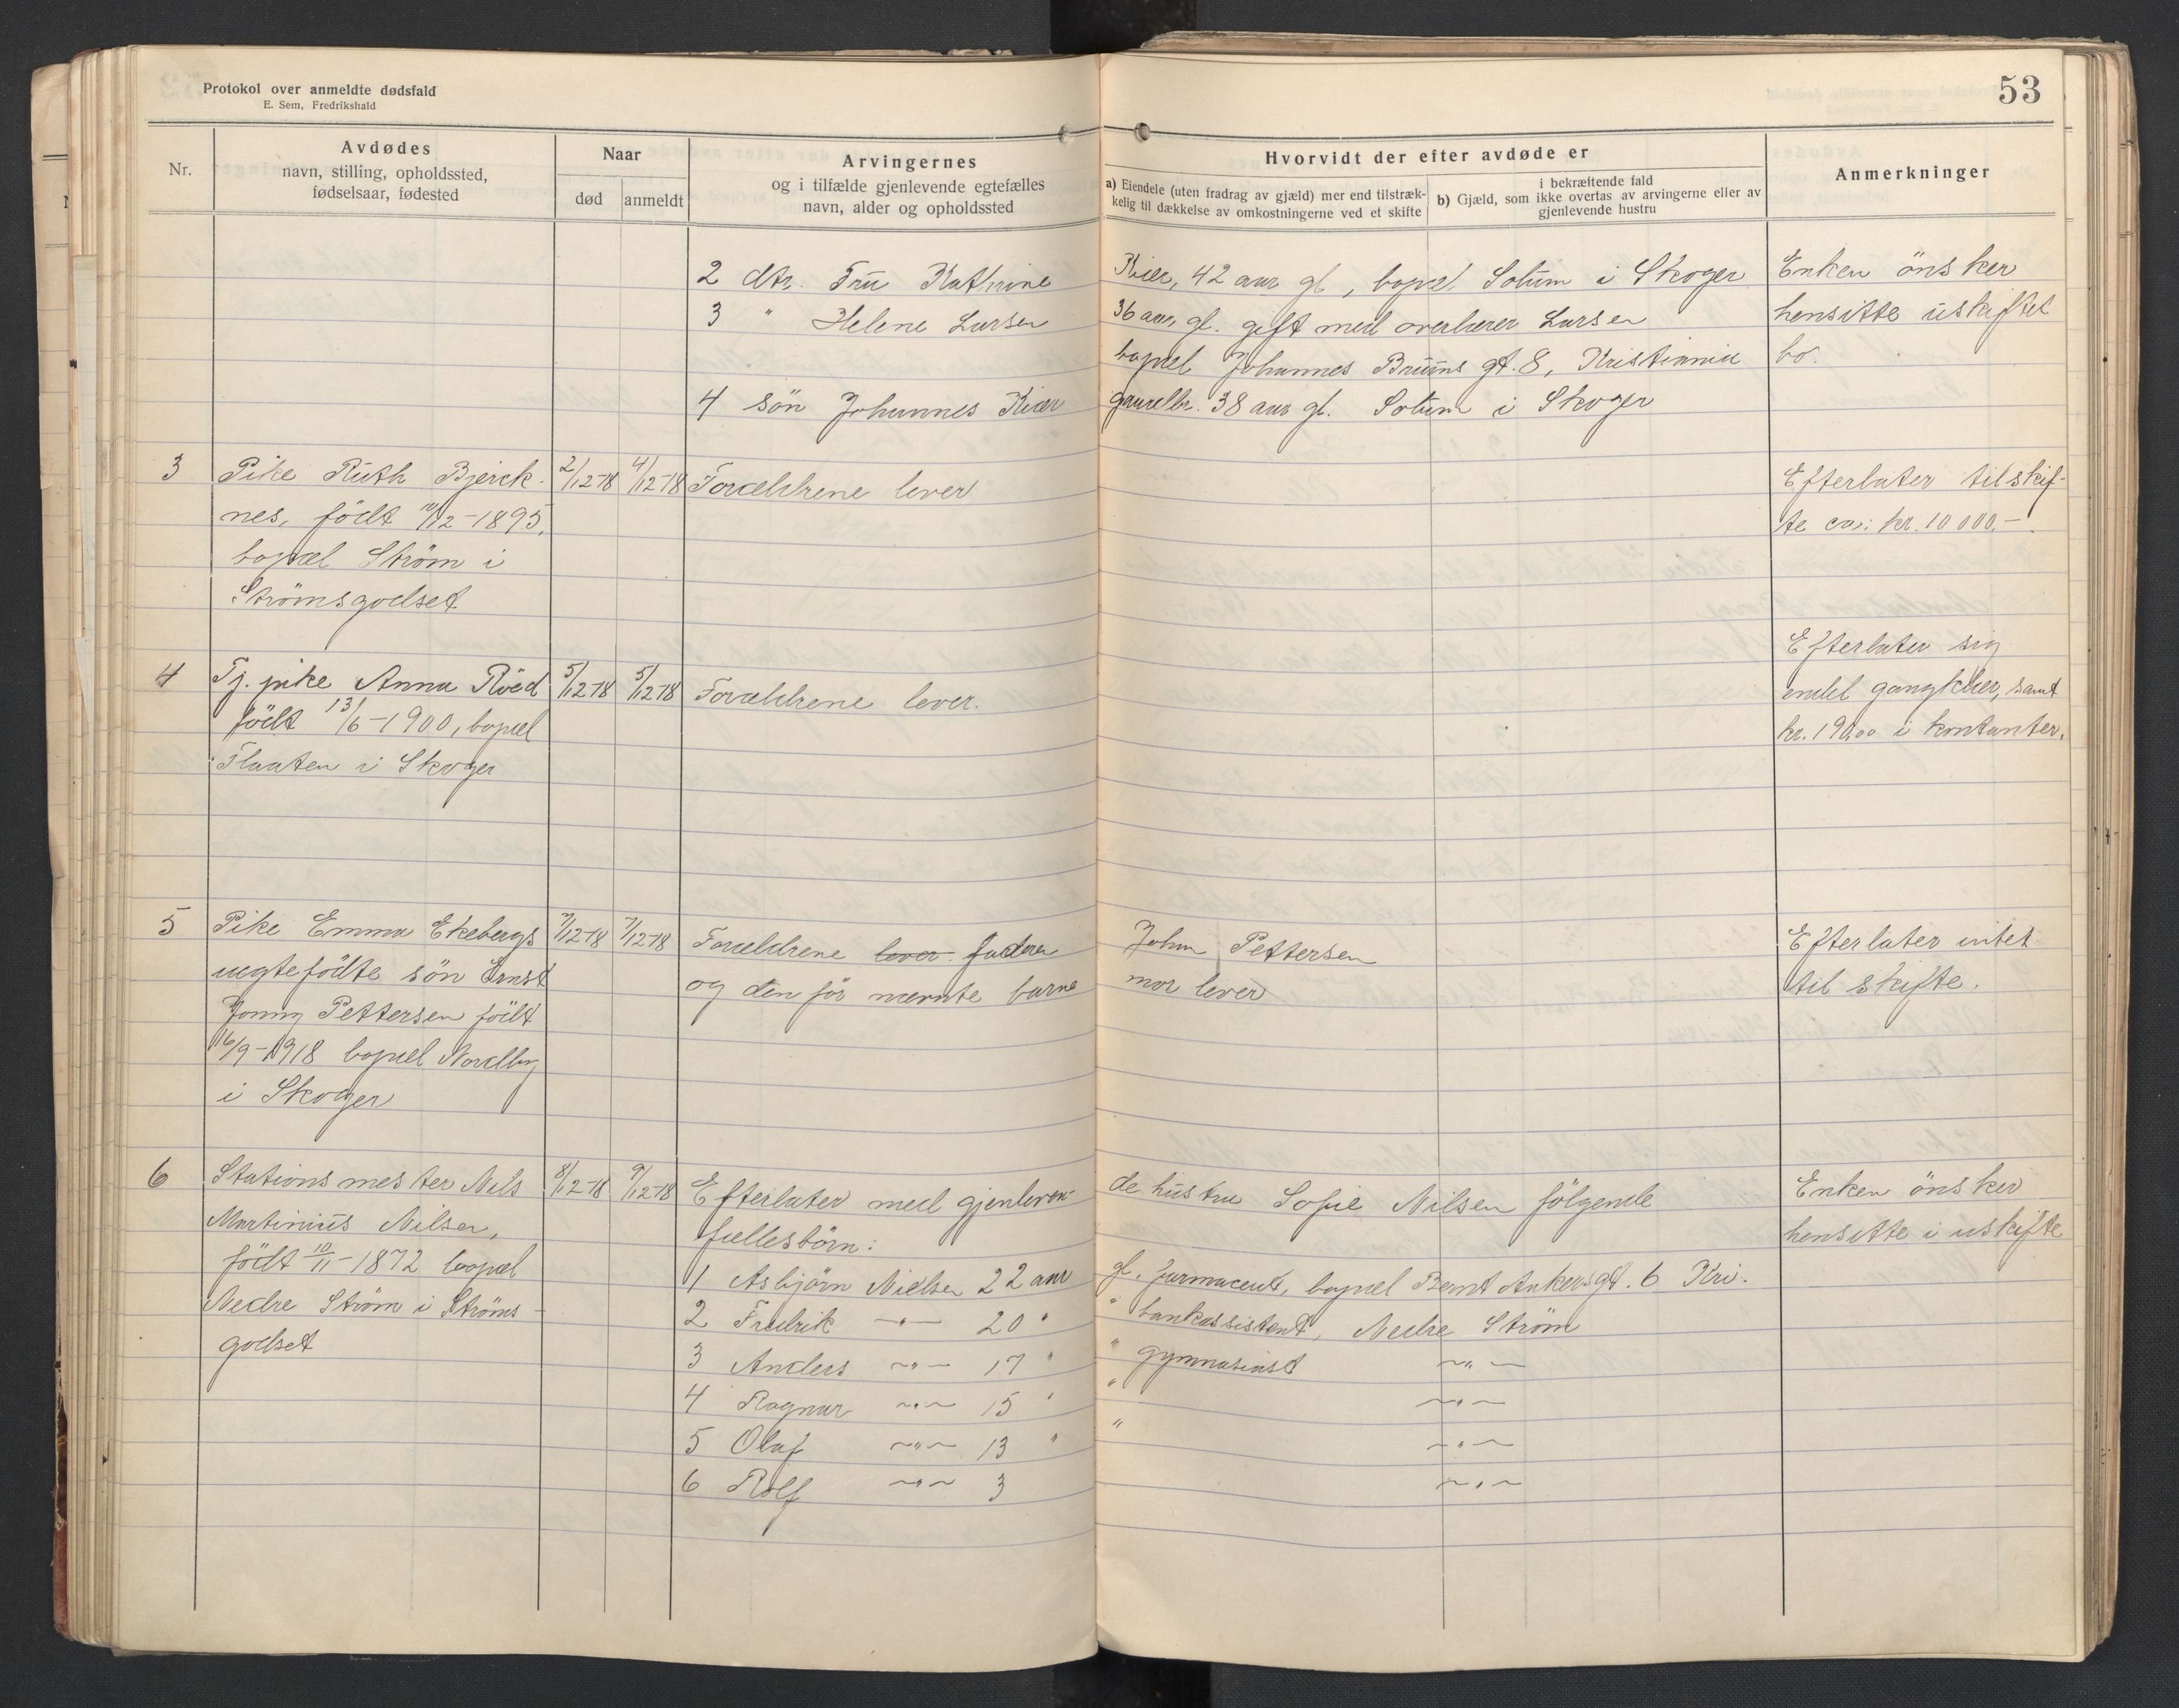 Protokol over anmeldte dødsfald
E. Sem, Fredrikshald
53
Nr.
Avdødes
navn, stilling, opholdssted,
fødselsaar, fødested
Naar
død
anmeldt
Arvingernes
og i tilfælde gjenlevende egtefælles
navn, alder og opholdssted
Hvorvidt der efter avdøde er
a) Eiendele (uten fradrag av gjæld) mer end tilstræk-
kelig til dækkelse av omkostningerne ved et skifte
i bekræftende fald
b) Gjæld, som ikke overtas av arvingerne eller av
gjenlevende hustru
Anmerkninger
2 dtr. Fru Kathrine Kiær, 42 aar gl, bopæl Solum i Skoger
3 " Helene Larsen 36 aar, gl. gift med overlærer Larsen
bopæl Johannes Bruuns gt. 8, Kristiania
4 sön Johannes Kiær gaardbr. 38 aar gl. Solum i Skoger
Enken önsker
hensitte uskiftet
bo.
3 Pike Ruth Bjerck- 2/12-18 4/12-18 Forældrene lever
nes, födt 10/12-1895,
bopæl Ström i
Strömsgodset
Efterlater til skif-
te ca: kr. 10 000,-.
4 Tj. pike Anna Röed 5/12-18 5/12-18 Forældrene lever.
födt 13/6-1900, bopæl
Flaaten i Skoger
Efterlater sig
endel gangklær, samt
kr. 190,00 i kontanter.
5 Pike Emma Ekebergs 7/12-18 7/12-18 Forældrene lever faderen John Pettersen
uegtefödte sön Ernst og den för nævnte barne mor lever
Jonny Pettersen födt
16/9-1918 bopæl Nordby
i Skoger
Efterlater intet
til skifte.
6 Stationsmester Nils 8/12-18 9/12-18 Efterlater med gjenleven- de hustru Sofie Nilsen fölgende
Martinius Nilsen, fællesbörn:
födt 10/11-1872 bopæl
Nedre Ström i Ströms-
godset
1 Asbjörn Nielsen 22 aar gl. farmaceut, bopæl Bernt Ankersgt. 6 Kri.
2 Fredrik -"- 20 " " bankassistent, Nedre Ström
3 Anders -"- 17 " " gymnasiast -"-
4 Ragnar -"- 15 " " -"-
5 Olaf -"- 13 " " -"-
6 Rolf -"- 3 -"-
Enken önsker
hensitte i uskifte